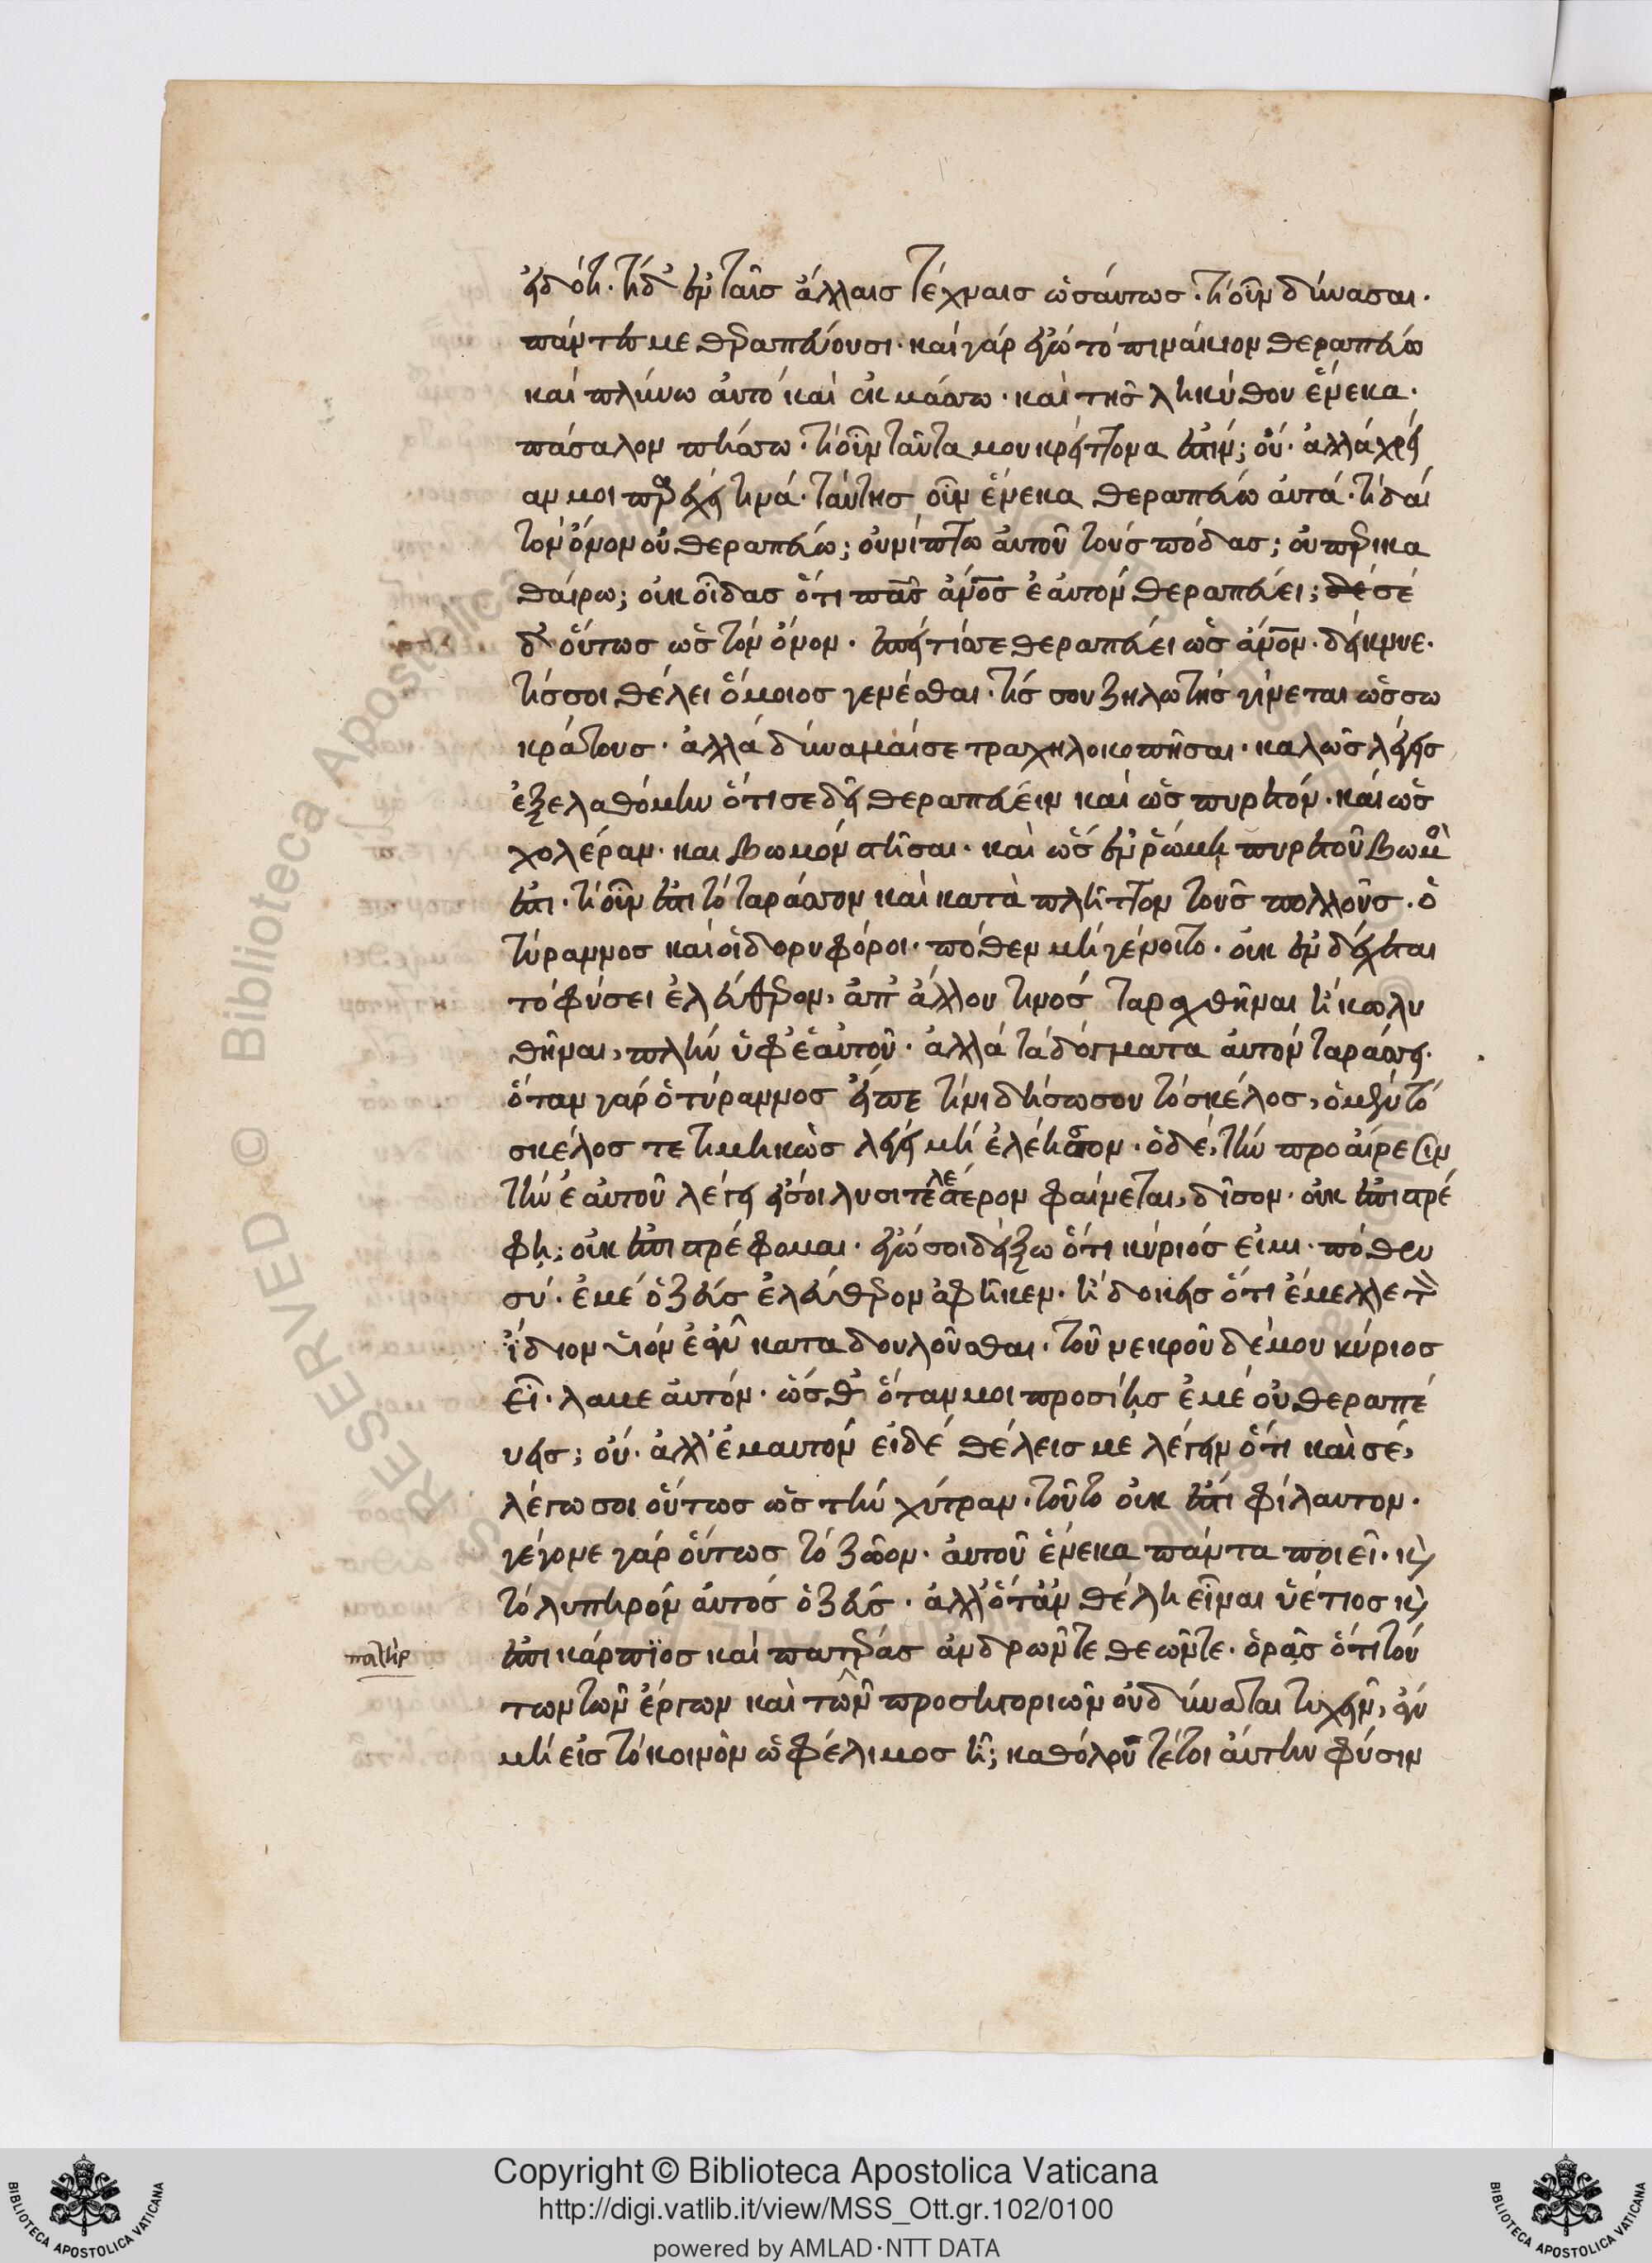 εἰδότι. τί δ' ἐν ταῖς ἄλλαις τέχναις ὡσάυτως. τί οὖν δύνασαι.
πάντές με θεραπεύουσι. καὶ γὰρ ἐγὼ τὸ πινάκιον θεραπεύω
καὶ πλύνω αὐτὸ καὶ ἐκμάσσω. καὶ τῆς ληκύθου ἕνεκα.
πάσαλον πήσσω. τί οὖν ταῦτα μου κρείττονα ἐστίν; οὔ. ἀλλὰ χρεί
αν μοι παρέχει τινά. ταύτης οὖν ἕνεκα θεραπεύω αὐτά. τί δαί
τὸν ὄνον οὐ θεραπεύω; οὐ νίπτω αὐτοῦ τοὺς πόδας; οὐ περικα
θαίρω; οὐκ οἶδας ὅτι πᾶς ἄνος ἑαυτὸν θεραπεύει; δὲ σὲ
δ' οὕτως ὡς τὸν ὄνον. ἐπεὶ τίς σε θεραπεύει ὡς ἄνον. δείκνυε.
τίς σοι θέλει ὅμοιος γενέσθαι. τίς σου ζηλωτὴς γίνεται ὡς σω
κράτους. ἀλλὰ δύναμαί σε τραχηλοκοπῆσαι. καλῶς λέγεις
ἐξελαθόμην ὅτι σε δεῖ θεραπεύειν καὶ ὡς πυρετόν. καὶ ὡς
χολέραν. και βωμὸν στῆσαι. καὶ ὡς ἐν ῥώμῃ πυρετοῦ βωμὸς
ἐστι. τί οὖν ἐστι τὸ ταράσσον καὶ καταπλῆττον τοὺς πολλοὺς. ὁ
τύραννος καὶ οἱ δορυφόροι. πόθεν μὴ γένοιτο. οὐκ ἐνδέχεται
τὸ φύσει ἐλεύθερον, ἀπ' ἄλλου τινὸς ταραχθῆναι ἢ κωλυ
θῆναι, πλὴν ὑφ' ἑαυτοῦ. ἀλλὰ τὰ δόγματα αὐτὸν ταράσσει.
ὅταν γὰρ ὁ τύραννος εἴπῃ τινὶ δήσω σου τὸ σκέλος, ὁ μὲν τὸ
σκέλος τετιμηκὼς λέγει μὴ ἐλέησον. ὁ δὲ, τὴν προαίρεσιν
τὴν ἑαυτοῦ λέγει εἴ σοι λυσιτελέστερον φαίνεται, δῆσον. οὐκ ἐπιστρέ
φῃ; οὐκ ἐπιστρέφομαι. ἐγώ σοι δείξω ὅτι κύριός εἰμι. πόθεν
σύ. ἐμὲ ὁ ζεὺς ἐλεύθερον ἀφῆκεν. ἢ δοκεῖς ὅτι ἔμελλε τὸν
ἴδιον υἱὸν ἐᾶν καταδουλοῦσθαι. τοῦ νεκροῦ δέ μου κύριος
εἶ. λαμε αὐτόν. ὥσθ' ὅταν μοι προσίῃς ἐμὲ οὐ θεραπε
ύεις; οὔ. ἀλλ' ἐμαυτόν εἰ δέ θέλεις με λέγειν ὅτι καὶ σέ,
λέγω σοι οὕτως ὡς τὴν χύτραν. τοῦτο οὐκ ἐστὶ φίλαυτον.
γέγονε γὰρ οὕτως τὸ ζῶον. αὐτοῦ ἕνεκα πάντα ποιεῖ. κὶ
τὸ λυπηρόν αὐτός ὁ ζεύς. ἀλλ' ὅταν θέλῃ εἶναι ὑέτιος κὶ
πατὴρ
ἐπικάρπϊος καὶ πατρὰς ἀνδρῶν τε θεῶν τε. ὁρᾷς ὅτι τού
των τῶν ἔργων καὶ τῶν προσηγοριῶν οὐ δύναται τυχεῖν, ἐὰν
μὴ εἰς τὸ κοινὸν ὠφέλιμος ᾖ; καθόλου τέ τοι αὐτὴν φύσιν